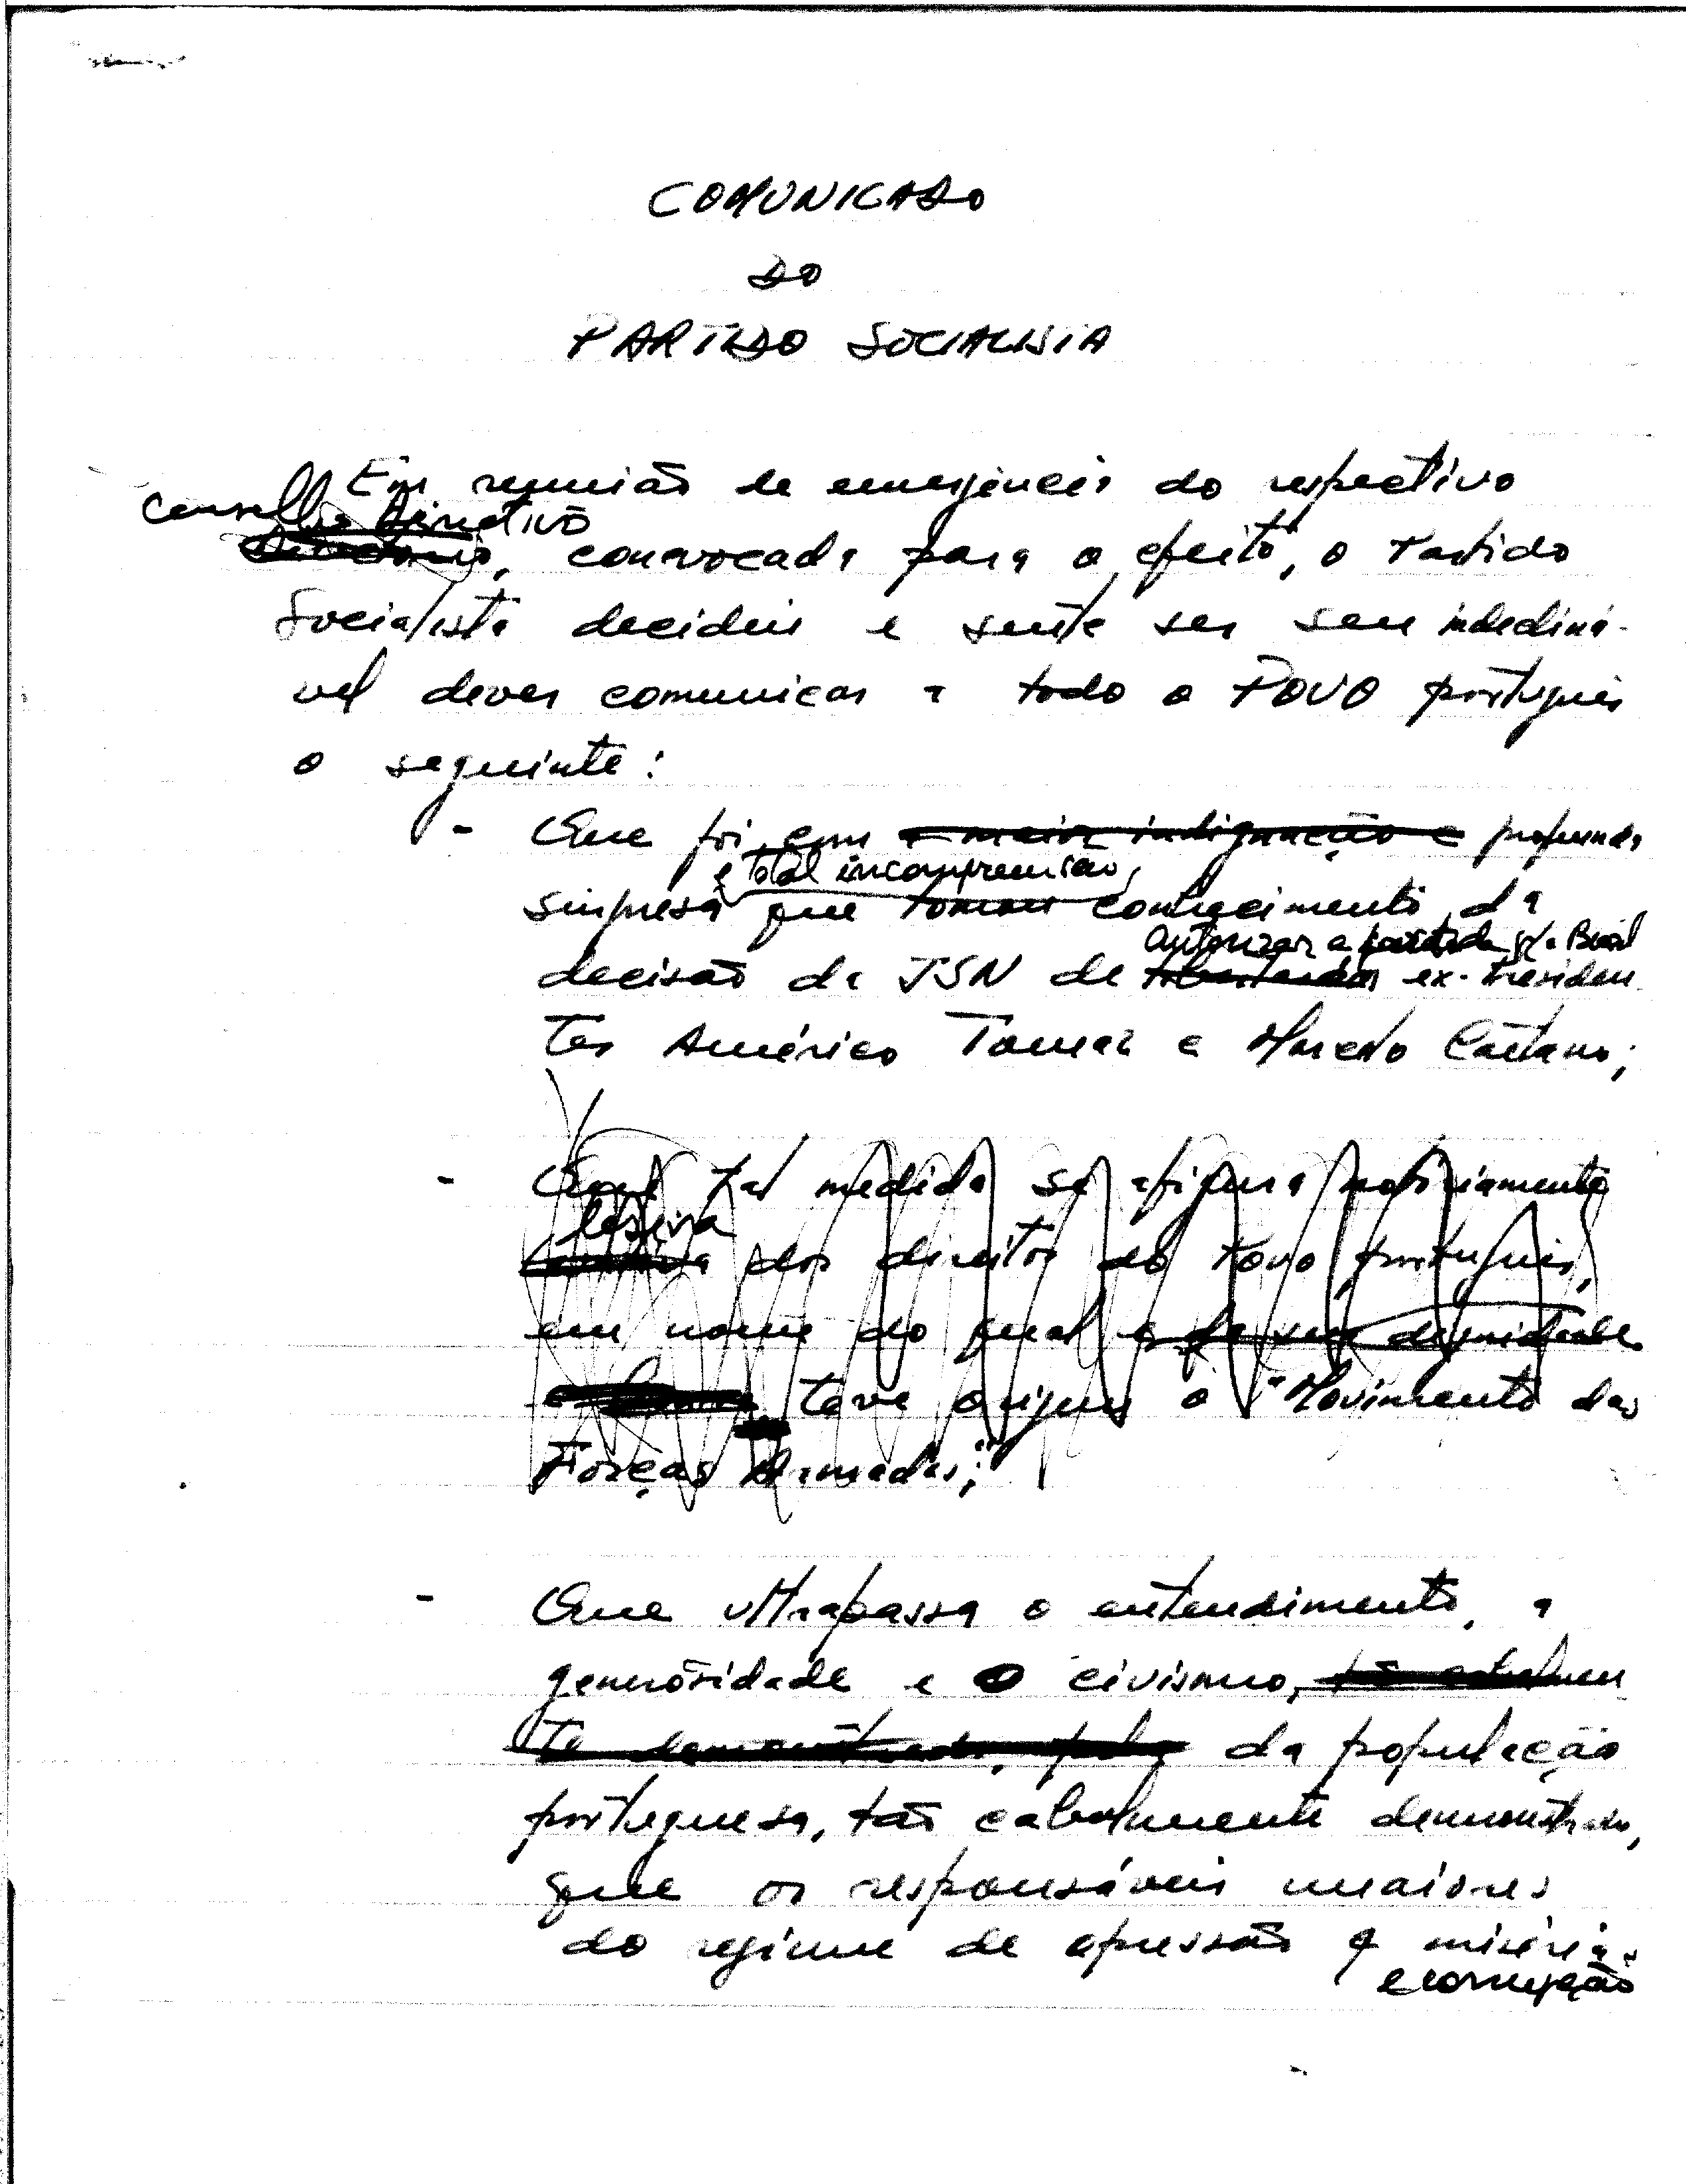 COMUNICADO
DO
PARTIDO SOCIALISTA
Em reunião de emergência do respectivo
Conselho Directivo
Directorio, convocada para o efeito, o Partido
Socialista decidiu e sente ser seu indecliná-
vel dever comunicar a todo o POVO português
o seguinte:
- Que foi com a maior indignação e profunda
e total incompreensão,
surpresa que tomou conhecimento da
autorizar a partida p/ o Brasil
decisão da JSN de ex-Presiden
tes Américo Tomaz e Marcelo Caetano;
- Que tal medida se afigura notoriamente
lesiva
dos direitos do Povo português,
em nome do qual e da sua dignidade
teve origem o "Movimento das
Forças Armadas;"
- Que ultrapassa o entendimento, a
generosidade e o civismo, tão cabalmen
te demonstrado, pela da população
portuguesa, tão cabalmente demonstrado,
que os responsáveis maiores
do regime de opressão e miséria
e corrupção